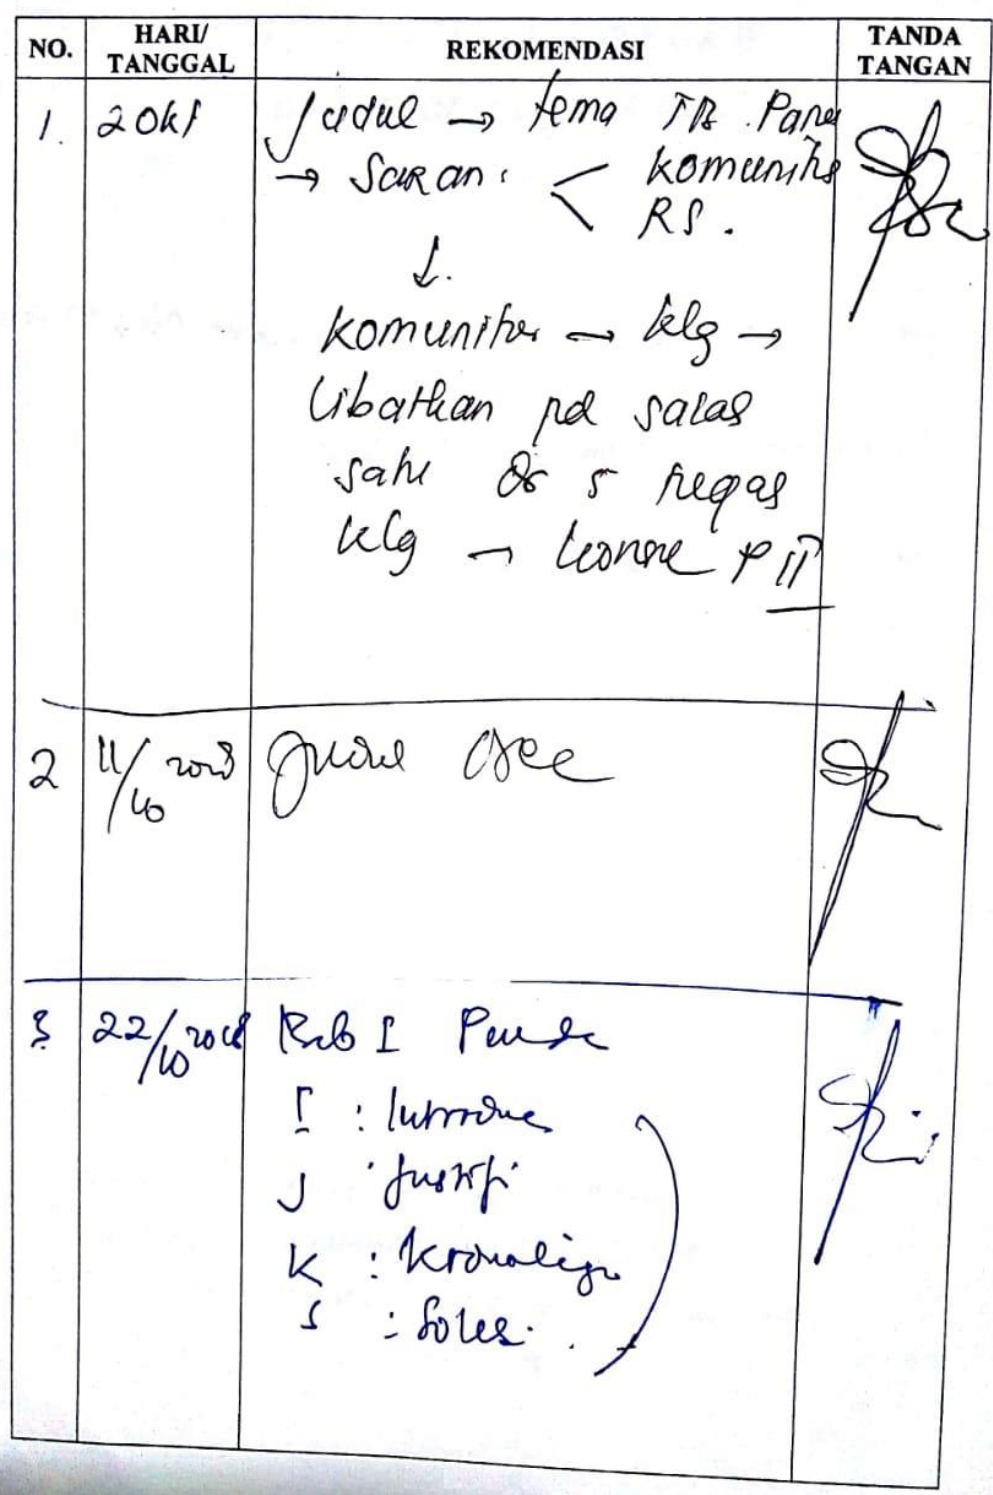 NO. HARI/ TANGGAL REKOMENDASI TANDA TANGAN
1. 2 Okt Judul → tema TB Paru
→ Saran : < komunitas
RS.
↓.
komunitas → klg →
libatkan pd salah
satu dr 5 tugas
klg →
2 11/10 2018 Judul Acc
3 22/10 2018 Bab I
I : Introduc
J : Justifi
K : Kronologi
S : Solus.